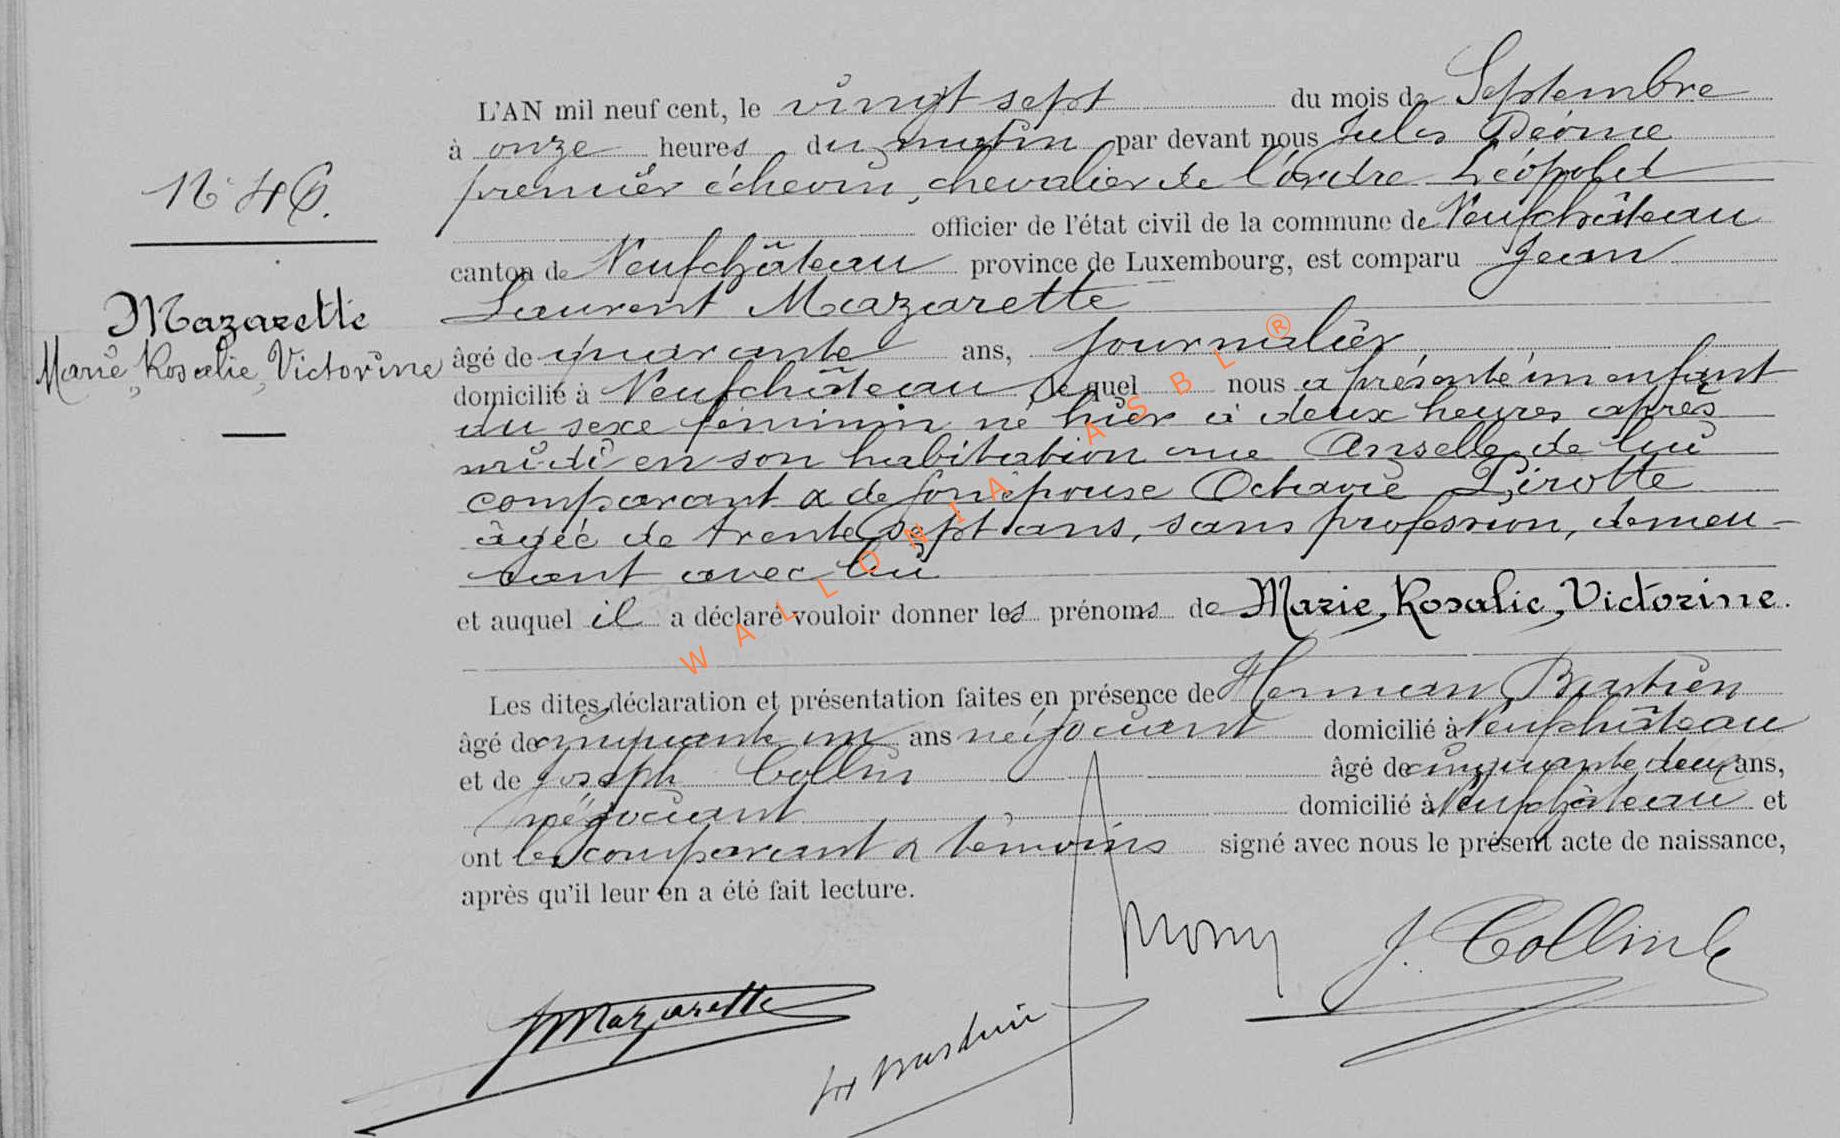 L'AN mil neuf cent, le vingt sept du mois de Septembre
à onze heures du matin par devant nous Jules Déome
premier échevin, chevalier de l'ordre Léopold
officier de l'état civil de la commune de Neufchâteau
canton de Neufchâteau province de Luxembourg, est comparu Jean
Laurent Mazarette
âgé de quarante ans, journalier
domicilié à Neufchâteau lequel nous a présenté un enfant
du sexe féminin né hier à deux heures après
midi en son habitation rue de lui
comparant & de son épouse Octavie Pirotte
âgée de trente sept ans, sans profession, demeu-
rant avec lui
et auquel il a déclaré vouloir donner les prénoms de Marie, Rosalie, Victorine.
Les dites déclaration et présentation faites en présence de Herman Bastien
âgé de cinquante un ans négociant domicilié à Neufchâteau
et de Joseph Collin âgé de cinquante deux ans,
négociant domicilié à Neufchâteau et
ont les comparant & témoins signé avec nous le présent acte de naissance,
après qu'il leur en a été fait lecture.
N° 46.
Mazarette
Marie, Rosalie, Victorine
JMazarette
H Bastien
J. Collin
WALLONIA ASBL ®